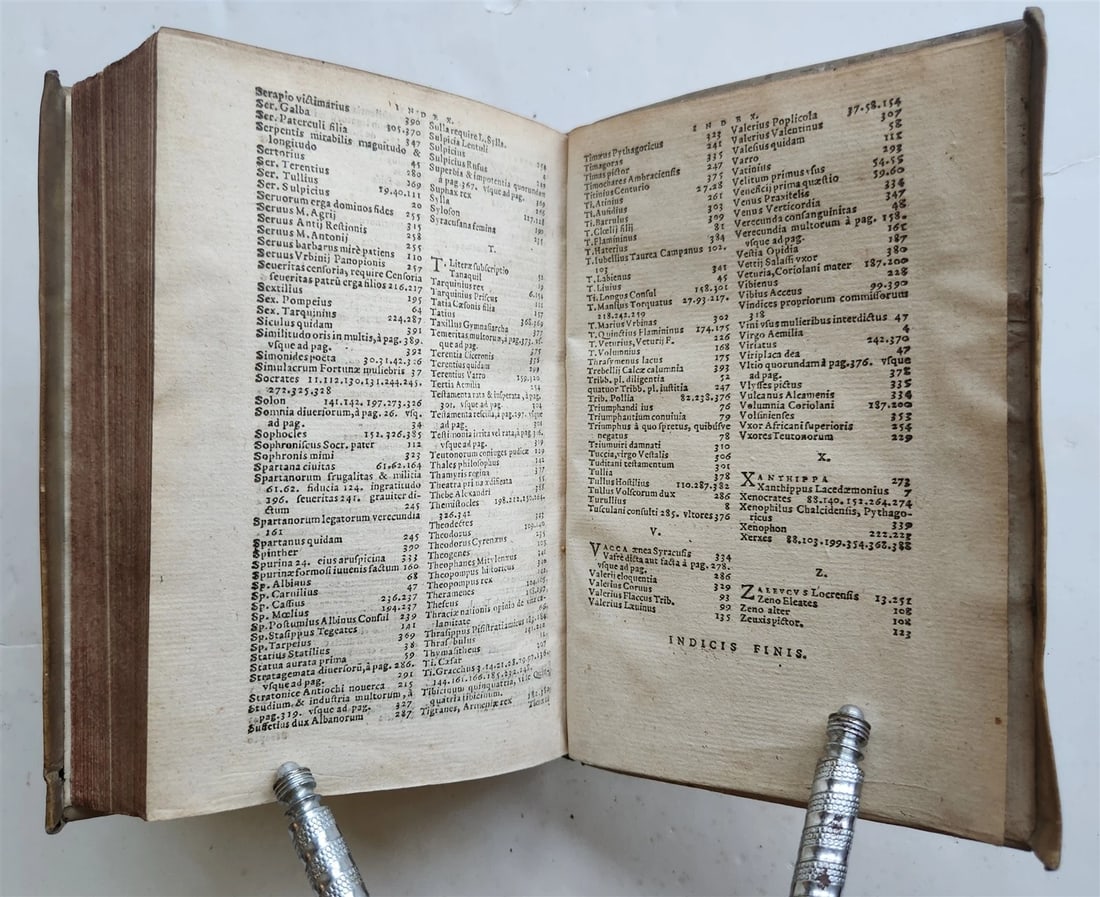 INDEX.
Serapio victimarius 390
Ser. Galba 305.370
Ser. Paterculi filia 347
Serpentis mirabilis magnitudo &
longitudo
Sertorius 45
Ser. Terentius 280
Ser. Tullius 369
Ser. Sulpicius 19.40.111
Seruorum erga dominos fides 20
Seruus M. Agrij 255
Seruus Antij Restionis 315
Seruus M. Antonij 258
Seruus barbarus mirè patiens 110
Seruus Vrbinij Panopionis 257
Seueritas censoria, require Censoria
seueritas patrū erga filios 216.217
Sextilius 195
Sex. Pompeius 64
Sex. Tarquinius 224.287
Siculus quidam 391
Similitudo oris in multis, à pag. 389.
vsque ad pag. 392
Simonides poeta 30.31.42.326
Simulacrum Fortunæ muliebris 37
Socrates 11.112.130.131.244.245.
272.325.328
Solon 141.142.197.273.326
Somnia diuersorum, à pag. 26. vsq.
ad pag. 34
Sophocles 152.326.385
Sophroniscus Socr. pater 112
Sophronis mimi 323
Spartana ciuitas 61.62.164
Spartanorum frugalitas & militia
61.62. fiducia 124. ingratitudo
396. seueritas 241. grauiter di-
ctum 245
Spartanorum legatorum verecundia
161
Spartanus quidam 245
Spinther 390
Spurina 24. eius aruspicina 333
Spurinæ formosi iuuenis factum 160
Sp. Albinus 68
Sp. Caruilius 47
Sp. Cassius 236.237
Sp. Mœlius 194.237
Sp. Postumius Albinus Consul 239
Sp. Stasippus Tegeates 141
Sp. Tarpeius 369
Statius Statilius 38
Statua aurata prima 59
Stratagemata diuersorū, à pag. 286.
vsque ad pag. 291
Stratonice Antiochi nouerca 215
Studium & industria multorum, à
pag. 319. vsque ad pag. 327
Suffetius dux Albanorum 287
Sulla require L. Sylla.
Sulpicia Lentuli
Sulpicius
Sulpicius Rufus
Superbia & impotentia quorundam
à pag. 367. vsque ad pag.
Suphax rex
Sylla
Syloson
Syracusana femina
T.
T. Literæ subscriptio
Tanaquil
Tarquinius rex
Tarquinius Priscus
Tatia Cæsonis filia
Tatius
Taxillus Gymnasiarcha
Temeritas multorum, à pag. 373. vs-
que ad pag.
Terentia Ciceronis
Terentius quidam
Terentius Varro
Tertia Aemilia
Testamenta rata & insperata, à pag.
301. vsque ad pag.
Testamenta rescissa, à pag. 297. vsque
ad pag.
Testimonia irrita vel rata, à pag.
vsque ad pag.
Teutonorum coniuges pudicæ
Thales philosophus
Thamyris regina
Theatra prima ædificata
Thebe Alexandri
Themistocles
326.342
Theodectes
Theodorus
Theodorus Cyrenæus
Theogenes
Theophanes Mitylenæus
Theopompus historicus
Theopompus rex
Theramenes
Theseus
Thraciæ nationis opinio de vitæ ca-
lamitate
Thrasippus Pisistrati amicus
Thrasybulus
Thymasitheus
Ti. Cæsar
Ti. Gracchus
144.161.166.185.232.242.
Tibicinum quinquatria, vide Quin-
quatria tibicinum.
Tigranes, Armeniæ rex
INDEX.
Timæus Pythagoricus 323
Timagoras 241
Timas pictor 335
Timochares Ambraciensis 247
Titinius Centurio 375
T. Atinius 27.28
T. Aufidius 261
T. Barrulus 303
T. Clœlij filij 309
T. Flamininus 81
T. Haterius 384
T. Iubellius Taurea Campanus 102.
103
T. Labienus 341
T. Liuius 45
Ti. Longus Consul 158.301
T. Manlius Torquatus 27.93.217.
218.242.219
T. Marius Vrbinas 302
T. Quinctius Flamininus 174.175
T. Veturius, Veturij F. 226
T. Volumnius 168
Thrasymenus lacus 175
Trebellij Calcæ calumnia 393
Tribb. pl. diligentia 52
quatuor Tribb. pl. iustitia 247
Trib. Pollia 82.238.376
Triumphandi ius 76
Triumphantium conuiuia 79
Triumphus à quo spretus, quibusve
negatus 78
Triumuiri damnati 310
Tuccia, virgo Vestalis 306
Tuditani testamentum 301
Tullia 378
Tullus Hostilius 110.287.382
Tullus Volscorum dux 286
Turullius 8
Tusculani consulti 285. vltores 376
V.
VACCA ænea Syracusis 334
Vafrè dicta aut facta à pag. 278.
vsque ad pag. 286
Valerij eloquentia 329
Valerius Coruus 93
Valerius Flaccus Trib. 99
Valerius Læuinus 135
Valerius Poplicola 37.58.154
Valerius Valentinus 307
Valesius quidam 58
Varro 111
Vatinius 293
Velitum primus vsus 54.55
Veneficij prima quæstio 59.60
Venus Praxitelis 334
Venus Verticordia 347
Verecunda consanguinitas 48
Verecundia multorum à pag. 158.
vsque ad pag. 161
Vestia Opidia 187
Vettij Salassi vxor 380
Veturia, Coriolani mater 187.200
Vibienus 228
Vibius Acceus 99.390
Vindices propriorum commissorum
318
Vini vsus mulieribus interdictus 47
Virgo Aemilia 4
Viriatus 242.370
Viriplaca dea 47
Vltio quorundam à pag. 376. vsque
ad pag. 378
Vlysses pictus 335
Vulcanus Alcamenis 334
Volumnia Coriolani 187.200
Volsinienses 353
Vxor Africani superioris 254
Vxores Teutonorum 229
X.
XANTHIPPA 273
Xanthippus Lacedæmonius 7
Xenocrates 88.140.152.264.274
Xenophilus Chalcidensis, Pythago-
ricus 339
Xenophon 222.225
Xerxes 88.103.199.354.368.388
Z.
ZALEVCVS Locrensis 13.251
Zeno Eleates 108
Zeno alter 108
Zeuxis pictor. 123
INDICIS FINIS.